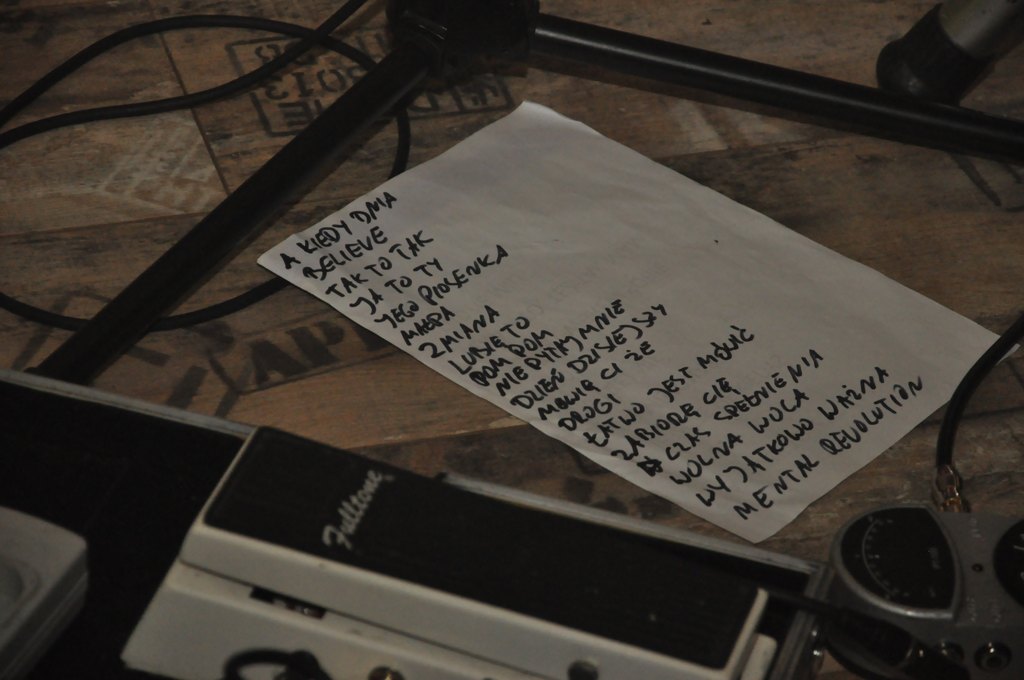 A KIEDY DMA
BELIEVE
TAK TO TAK
JA TO TY
JEGO PIOSENKA
MAŁPA
ZMIANA
LUBIĘ TO
POM POM
NIE PYTAJ MNIE
DZIEŃ DZISIEJSZY
MÓWIĄ CI ŻE
DROGI
ŁATWO JEST MÓWIĆ
ZABIORĘ CIĘ
CZAS SPEŁNIENIA
WOLNA WOLA
WYJĄTKOWO WAŻNA
MENTAL REVOLUTION
Fulltone